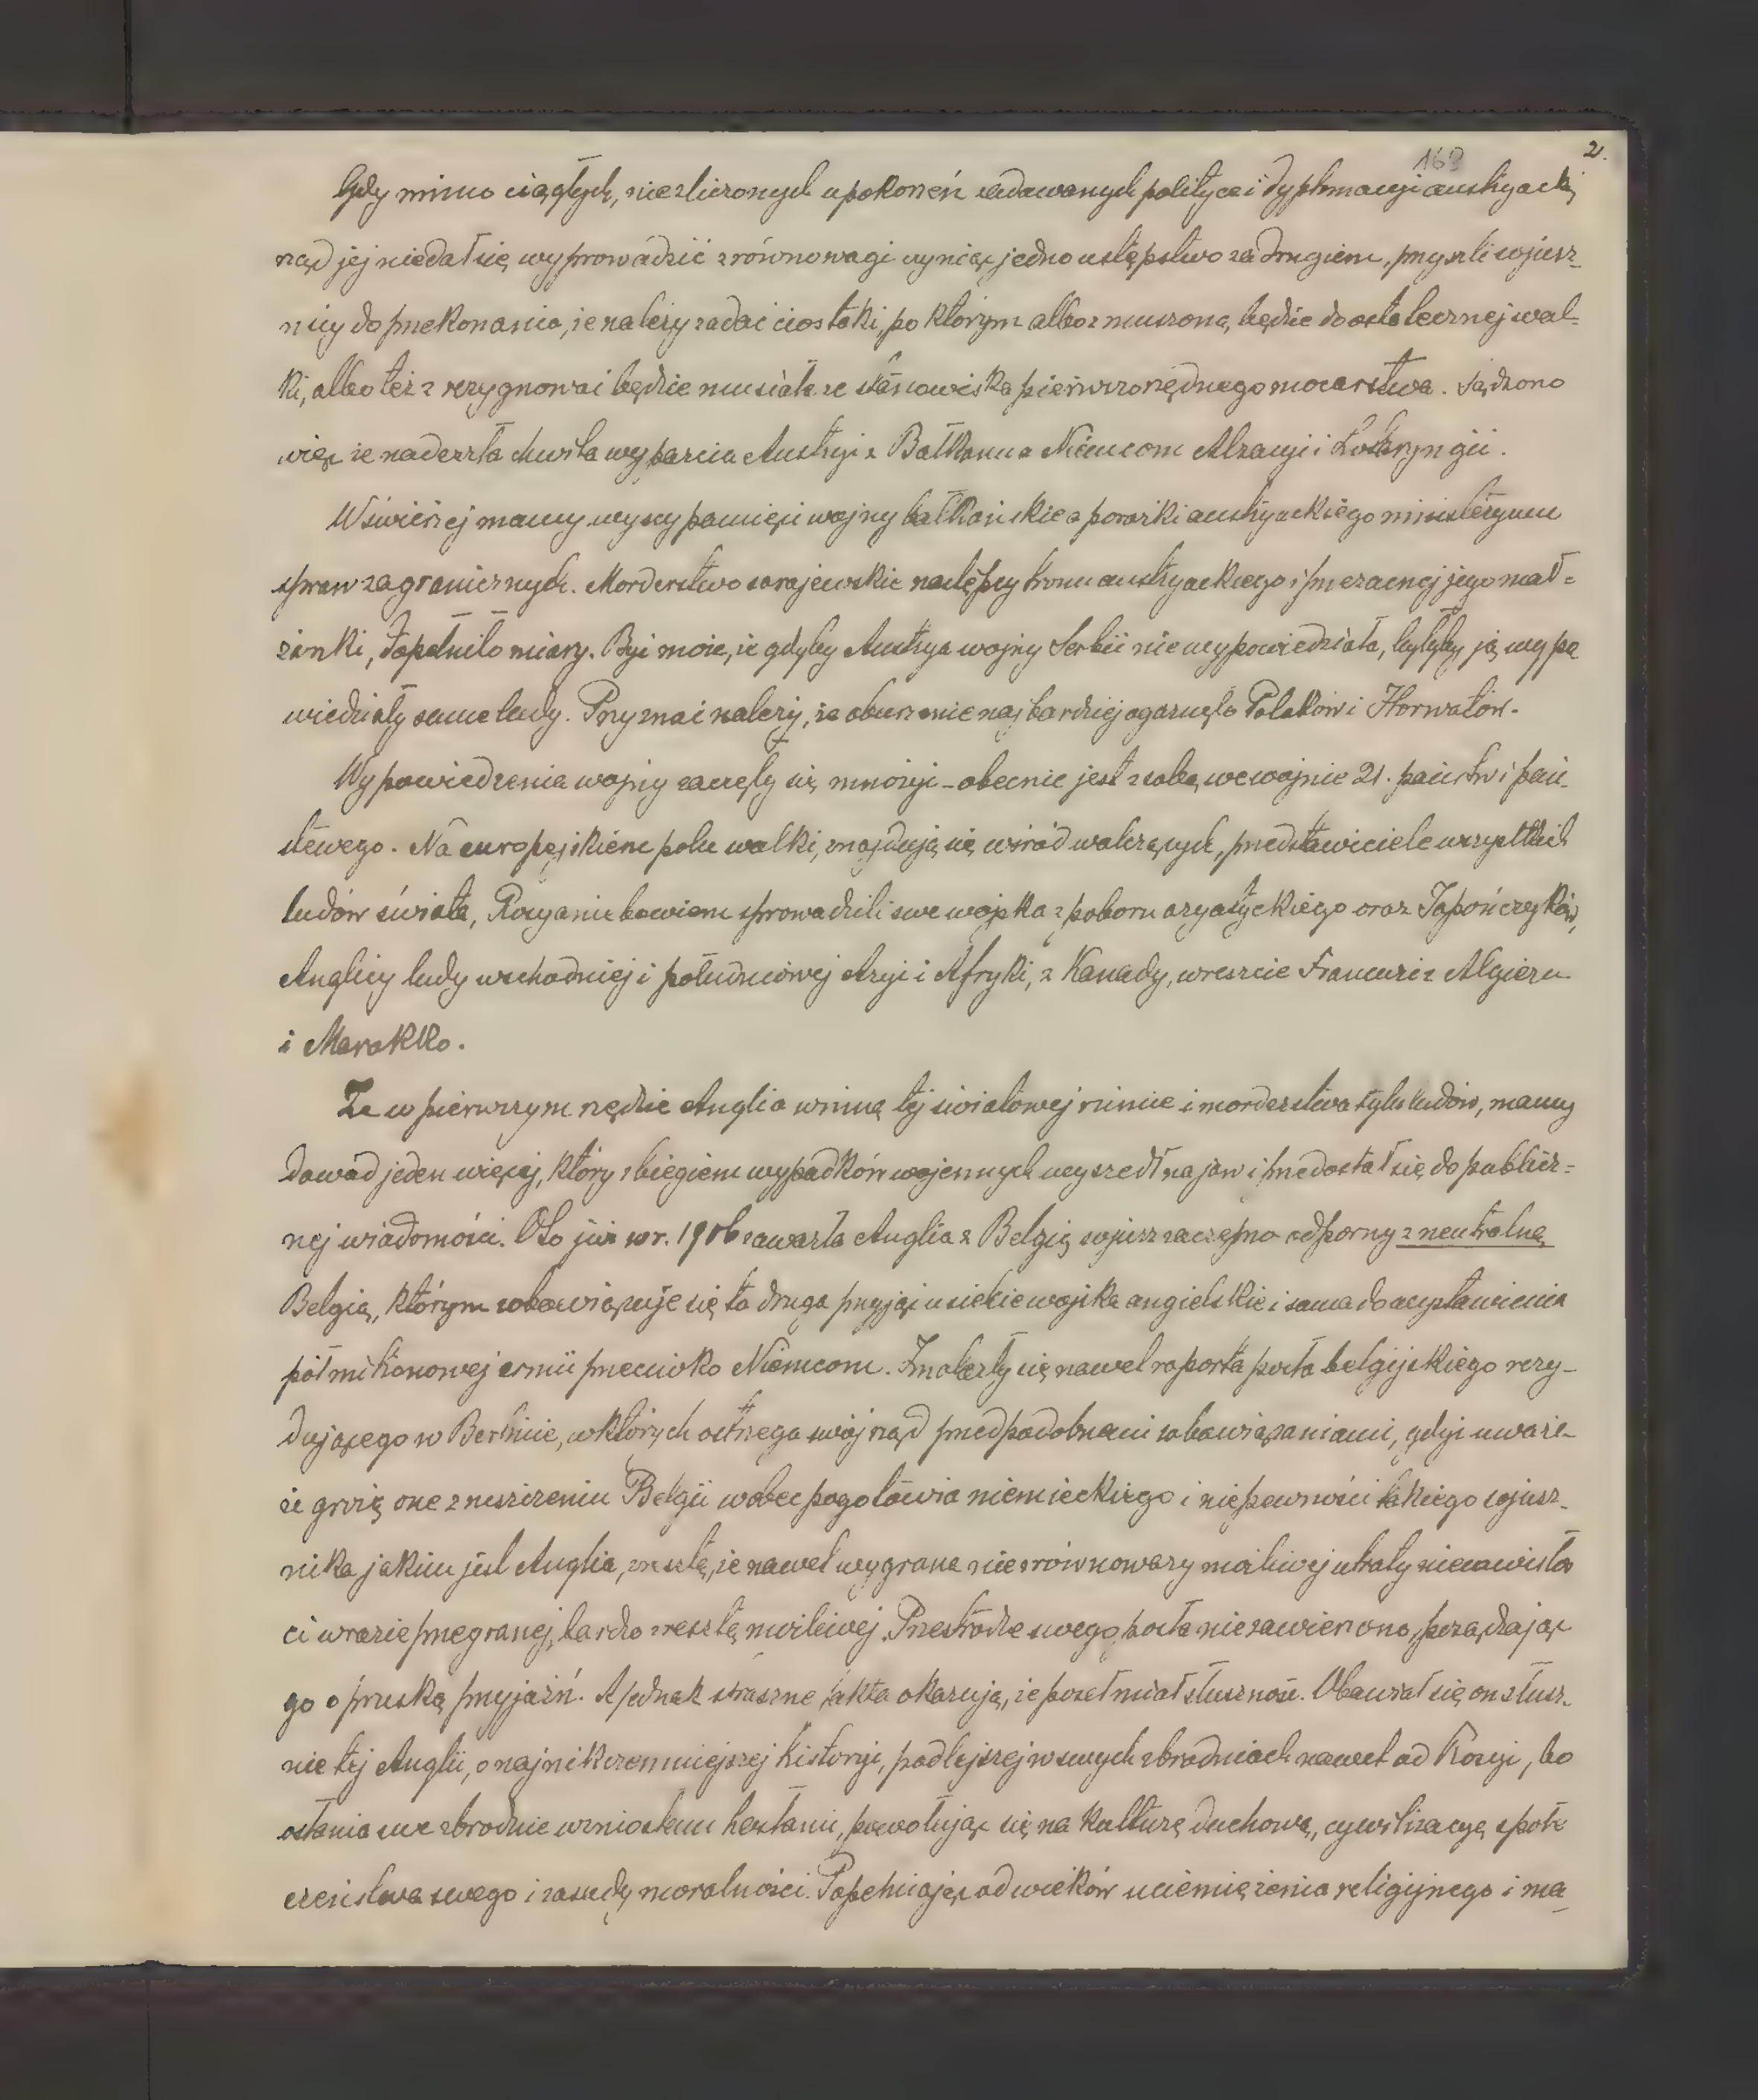 2.
169
Gdy mimo ciągłych, niezliczonych upokorzeń zadawanych polityce i dyplomacyi austryackiej
rząd jej niedał się wyprowadzić z równowagi czyniąc jedno ustępstwo za drugiem, przyszli sojusz-
nicy do przekonania, że należy zadać cios taki, po którym albo zmuszoną będzie do ostatecznej wal-
ki, albo też zrezygnować będzie musiała ze stanowiska pierwszorzędnego mocarstwa. Sądzono
więc że nadeszła chwila wyparcia Austryi z Bałkanu a Niemcom Alzacyi i Lotaryngii.
W świeżej mamy wszyscy pamięci wojny bałkańskie a porażki austryackiego ministeryum
spraw zagranicznych. Morderstwo sarajewskie następcy tronu austryackiego i przezacnej jego mał=
żonki, dopełniło miary. Być może, że gdyby Austrya wojny Serbii nie wypowiedziała, byłyby ją wypo
wiedziały same ludy. Przyznać należy, że oburzenie najbardziej ogarnęło Polaków i Horwatów.
Wypowiedzenia wojny zaczęły się mnożyć - obecnie jest z sobą we wojnie 21. państw i pań-
stewego. Na europejskiem polu walki, znajdują się wśród walczących, przedstawiciele wszystkich
ludów świata, Rosyanie bowiem sprowadzili swe wojska z poboru azyatyckiego oraz Japończyków,
Anglicy ludy wschodniej i południowej Azyi i Afryki, z Kanady, wreszcie Francuzi z Algieru
i Marokko.
Że w pierwszym rzędzie Anglia winną tej światowej ruinie i morderstwa tylu ludów, mamy
dowód jeden więcej, który z biegiem wypadków wojennych wyszedł na jaw i przedostał się do publicz=
nej wiadomości. Oto już w r. 1906 zawarła Anglia z Belgią sojusz zaczepno odporny z neutralną
Belgią, którym zobowiązuje się ta druga przyjąć u siebie wojska angielskie i sama do wystawienia
pół milionowej armii przeciwko Niemcom. Znalazły się nawet raporta posła belgijskiego rezy-
dującego w Berlinie, w których ostrzega swój rząd przed podobnemi zobowiązaniami, gdyż uważa-
że grożą one zniszczeniu Belgii wobec pogotowia niemieckiego i niepewności takiego sojusz-
nika jakim jest Anglia, zresztą, że nawet wygrana nie zrównoważy możliwej utraty niezawisłoś
ci w razie przegranej, bardzo zresztą możliwej. Przestrodze swego posła nie zawierzono, posądzając
go o pruską przyjaźń. A jednak straszne fakta okazują, że poseł miał słuszność. Obawiał się on słusz-
nie tej Anglii, o najnikczemniejszej historyi, podlejszej w swych zbrodniach nawet od Rosyi, bo
osłania swe zbrodnie wzniosłemi hasłami, powołując się na kulturę duchową, cywilizacyę społe
czeństwa swego i zasady moralności. Popełniając od wieków uciemiężenia religijnego i ma-